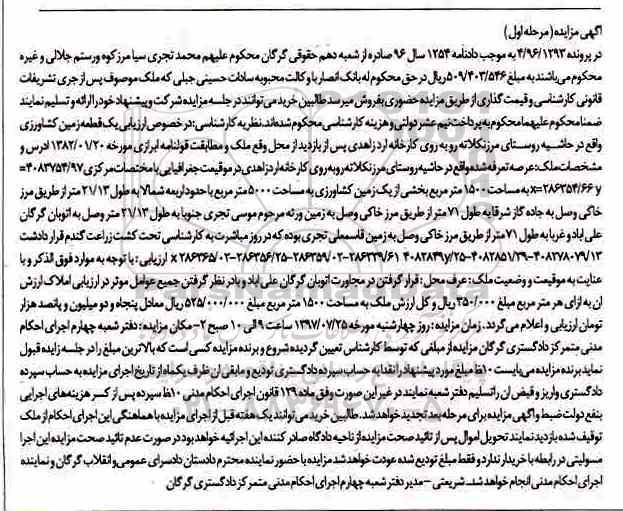 اگهی مزایده (مرحله اول)
در پرونده ۴/۹۶/۱۲۹۳ به موجب دادنامه ۱۲۵۴ سال ۹۶ صادره از شعبه دهم حقوقی گرگان محکوم علیهم محمد تجری سیا مرز کوه ورستم جلالی و غیره
محکوم می باشند به مبلغ ۵۰۹/۴۰۳/۵۴۶ ریال در حق محکوم له بانک انصار با وکالت محبوبه سادات حسینی جبلی که ملک موصوف پس از جری تشریفات
قانونی کارشناسی و قیمت گذاری از طریق مزایده حضوری بفروش میرسد طالبین خرید می توانند در جلسه مزایده شرکت و پیشنهاد خود را ارائه و تسلیم نمایند
ضمنا محکوم علیهما محکوم به پرداخت نیم عشر دولتی و هزینه کارشناسی محکوم شده اند. نظریه کارشناسی: در خصوص ارزیابی یک قطعه زمین کشاورزی
واقع در حاشیه روستای مرزنکلاته رو به روی کارخانه ارد زاهدی پس از بازدید از محل وقع ملک و مطابقت قولنامه ابرازی مورخه ۱۳۸۲/۰۱/۲۰ ادرس و
مشخصات ملک: عرصه تعرفه شده واقع در حاشیه روستای مرزنکلاته روبه روی کارخانه ارد زاهدی در موقیعت جغرافیایی با مختصات مرکزی ۴۰۸۳۷۵۴/۹۷=
x=۲۸۶۳۵۴/۶۶ y به مساحت ۱۵۰۰ متر مربع بخشی از یک زمین کشاورزی به مساحت ۵۰۰۰ متر مربع با حدود اربعه شمالا به طول ۲۱/۱۳ متر از طریق مرز
خاکی وصل به جاده گاز شرقا به طول ۷۱ متر از طریق مرز خاکی وصل به زمین ورثه مرحوم موسی تجری جنوبا به طول ۲۱/۱۳ متر وصل به اتوبان گرگان
علی اباد و غربا به طول ۷۱ متر از طریق مرز خاکی وصل به زمین قاسمعلی تجری بوده که در روز مباشرت به کارشناسی تحت کشت زراعت گندم قرار دادشت
۴۰۸۲۷۸۰۷۹/۱۳-۴۰۸۲۸۵۱/۲۹-۴۰۸۲۸۴۹y/۲۵ ۲۸۶۳۶۵/۰۲-۲۸۶۳۵۶/۲۵-۲۸۶۳۵۹/۰۲-۲۸۶۳۳۹/۶۱ x ارزیابی: با توجه به موارد فوق الذکر و با
عنایت به موقیعت و وضعیت ملک: عرف محل: قرار گرفتن در مجاورت اتوبان گرگان علی اباد و بادر نظر گرفتن جمیع عوامل موثر در ارزیابی املاک ارزش
ان به ازای هر متر مربع مبلغ ۳۵۰/۰۰۰ ریال و کل ارزش ملک به مساحت ۱۵۰۰ متر مربع مبلغ ۵۲۵/۰۰۰/۰۰۰ ریال معادل پنجاه و دو میلیون و پانصد هزار
تومان ارزیابی و اعلام می گردد. زمان مزایده: روز چهارشنبه مورخه ۱۳۹۷/۰۷/۲۵ ساعت ۹ الی ۱۰ صبح ۲-مکان مزایده: دفتر شعبه چهارم اجرای احکام
مدنی متمرکز دادگستری گرگان مزایده از مبلغی که توسط کارشناس تعیین گردیده شروع و برنده مزایده کسی است که بالاترین مبلغ را در جلسه زایده قبول
نماید برنده مزایده می بایست ۱۰٪ مبلغ مورد پیشنهاد را نقدا به حساب سپرده دادگستری تودیع و مابقی ان ظرف یکماه از تاریخ اجرای مزایده به حساب سپرده
دادگستری واریز و قبض ان را تسلیم دفتر شعبه نمایند در غیر این صورت وفق ماده ۱۲۹ قانون اجرای احکام مدنی ۱۰٪ سپرده پس از کسر هزینه های اجرایی
بنفع دولت ضبط و اگهی مزایده برای مرحله بعد تجدید خواهد شد. طالبین خرید می توانند یک هفته قبل از اجرای مزایده با هماهنگی این اجرای احکام از ملک
توقیف شده بازدید نمایند تحویل اموال پس از تائید صحت مزایده از ناحیه دادگاه صادر کننده این اجرائیه خواهد بود در صورت عدم تائید صحت مزایده این اجرا
مسولیتی در رابطه با خریدار ندارد و فقط مبلغ تودیع شده عودت خواهد شد مزایده با حضور نماینده محترم دادستان دادسرای عمومی و انقلاب گرگان و نماینده
اجرای احکام مدنی انجام خواهد شد. شریعتی - مدیر دفتر شعبه چهارم اجرای احکام مدنی متمرکز دادگستری گرگان